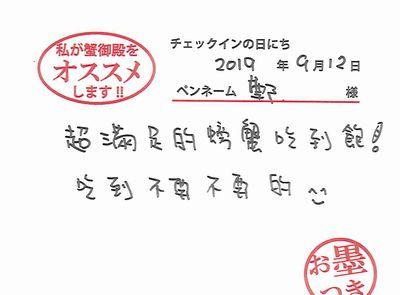 私が蟹御殿を
オススメ
します!!
チェックインの日にち
2019 年 9月12日
ペンネーム 様
超滿足的螃蟹吃到飽!
吃到不要不要的
お墨
つき